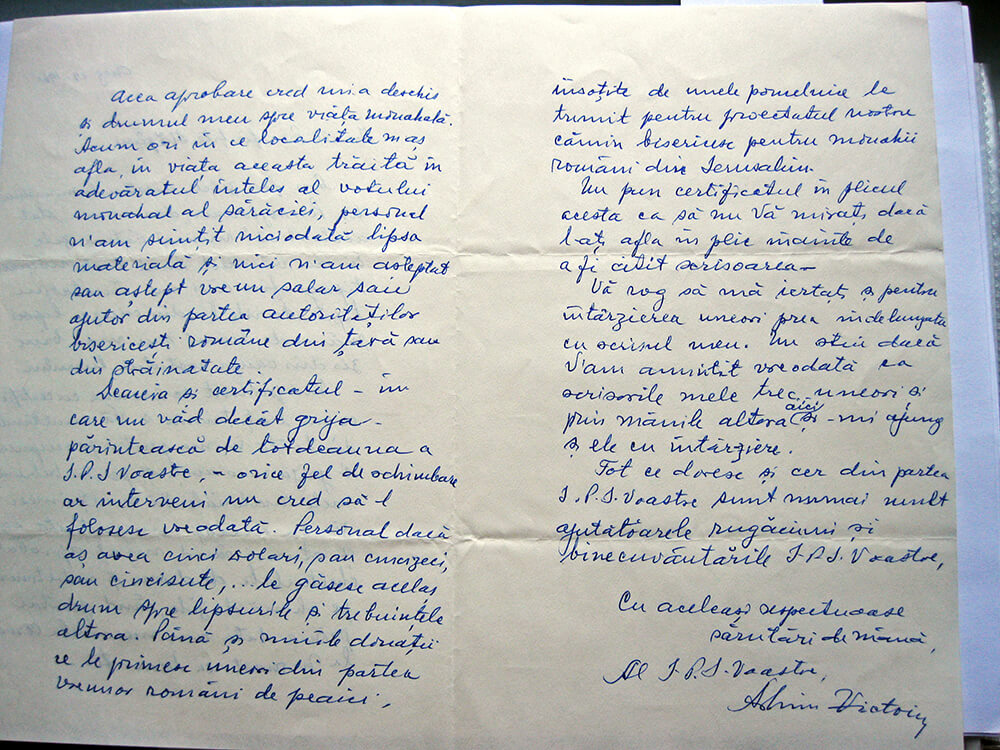 Acea aprobare cred mi-a deschis
și drumul meu spre viața monahală.
Acum ori în ce localitate m'aș
afla, în viața aceasta trăită în
adevăratul înteles al votului
monahal al sărăciei, personal
n'am simțit niciodată lipsa
materială și nici n'am așteptat
sau aștept vreun salar sau
ajutor din partea autorităților
bisericești române din țară sau
din străinatate
Deaceia și certificatul - în
care nu văd decât grija -
părintească de totdeauna a
I.P.S Voastre, - orice fel de schimbare
ar interveni nu cred să-l
folosesc vreodată. Personal dacă
aș avea cinci dolari, sau cincizeci,
sau cincisute, ... le găsesc acelaș
drum spre lipsurile și trebuințele
altora. Până și micile donații
ce le primesc uneori din partea
vreunor români de peaici,
însoțite de unele pomelnice le
trimit pentru proectatul nostru
cămin bisericesc pentru monahii
români din Ierusalim.
Nu pun certificatul în plicul
acesta ca să nu Vă mirați dacă
l-ați afla în plic înainte de
a fi citit scrisoarea -
Vă rog să mă iertați și pentru
întârzierea uneori prea îndelungata
cu scrisul meu. Nu știu dacă
V'am amintit vreodată ca
scrisorile mele trec uneori și
prin mânile altora aici și - mi ajung
și ele cu întârziere.
Tot ce doresc și cer din partea
I.P.S. Voastre sunt numai mult
ajutătoarele rugăciuni și
binecuvântările I.P.S Voastre,
Cu aceleași respectuoase
sărutări de mână,
Al I.P.S. Voastre,